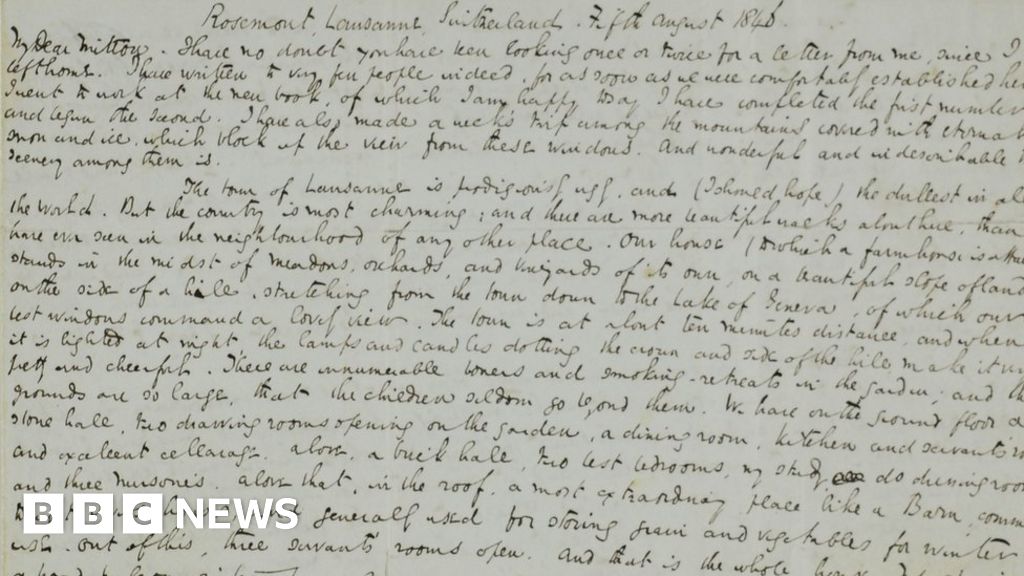 Rosemont, Lausanne, Switzerland. Fifth August 1846.
My Dear Mitton. I have no doubt you have been looking once or twice for a letter from me, since I
left home. I have written to very few people indeed, for as soon as we were comfortably established her
I went to work at the new book, of which I am happy today I have completed the first number
and begun the second. I have also made a week's trip among the mountains covered with eternal
snow and ice, which block up the view from these windows. And wonderful and indescribable
scenery among them is.
The town of Lausanne is prodigiously ugly, and (I should hope) the dullest in all
the world. But the country is most charming; and there are more beautiful walks about here, than
have ever seen in the neighbourhood of any other place. Our house (to which a farmhouse is atta
stands in the midst of meadows, orchards, and vineyards of its own, on a beautiful slope of land
on the side of a hill, stretching from the town down to the Lake of Geneva, of which our
best windows command a lovely view. The town is at about ten minutes distance, and when
it is lighted at night the lamps and candles dotting the crown and side of the hill make it
pretty and cheerful. There are innumerable bowers and smoking-retreats in the garden; and th
grounds are so large, that the children seldom go beyond them. We have on the ground floor a
stone hall, two drawing rooms opening on the garden, a dining room, kitchen and servants
and excellent cellarage. above, a brick hall, two best bedrooms, my study, do dressing room
and three nurseries. above that, in the roof, a most extraordinary place like a Barn, comm
generally used for storing grain and vegetables for winter
use. Out of this, three servants' rooms open. And that is the whole
BBC NEWS